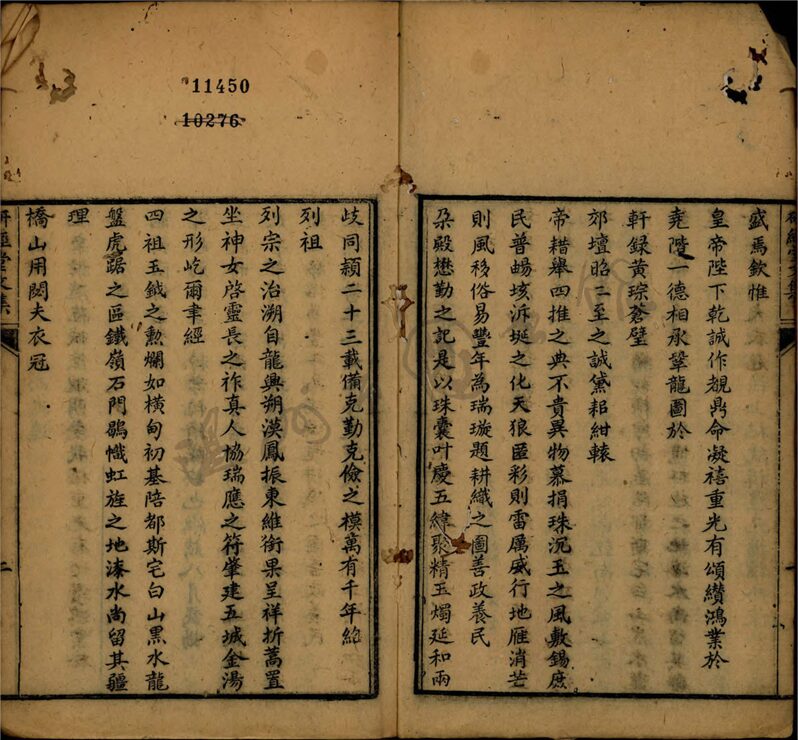 11450
10276
盛焉欽惟
皇帝陛下乾誠作覩鼎命凝禧重光有頌纘鴻業於
堯階一德相承鞏龍圖於
軒錄黃琮蒼璧
郊壇昭二至之誠黛耜紺轅
帝耤舉四推之典不貴異物慕捐珠沉玉之風敷錫庶
民普暘垓泝埏之化天狼匿彩則雷厲威行地雁消芒
則風移俗易豐年為瑞璇題耕織之圖善政養民
朵殿懋勤之記是以珠囊叶慶五緯聚精玉燭延和兩
歧同穎二十三載備克勤克儉之模萬有千年紹
列祖
列宗之治溯自龍興朔漠鳳振東維銜果呈祥折蒿置
坐神女啓靈長之祚真人協瑞應之符肇建五城金湯
之形屹爾聿經
四祖玉鉞之勲爛如橫甸初基陪都斯宅白山黑水龍
盤虎踞之區鐵嶺石門幟虹旌之地漆水尚留其疆
理
橋山用閟夫衣冠
二